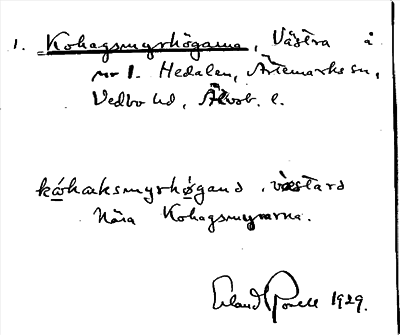 1. Kohagsmyrhögarna, Västra å
nr 1. Hedalen, Ärtemarks sn,
Vedbo hd, Älvsb. l.
kóhaksmyrhø̀gand, västard
Nära Kohagsmyrarna.
Erland Rosell 1929.